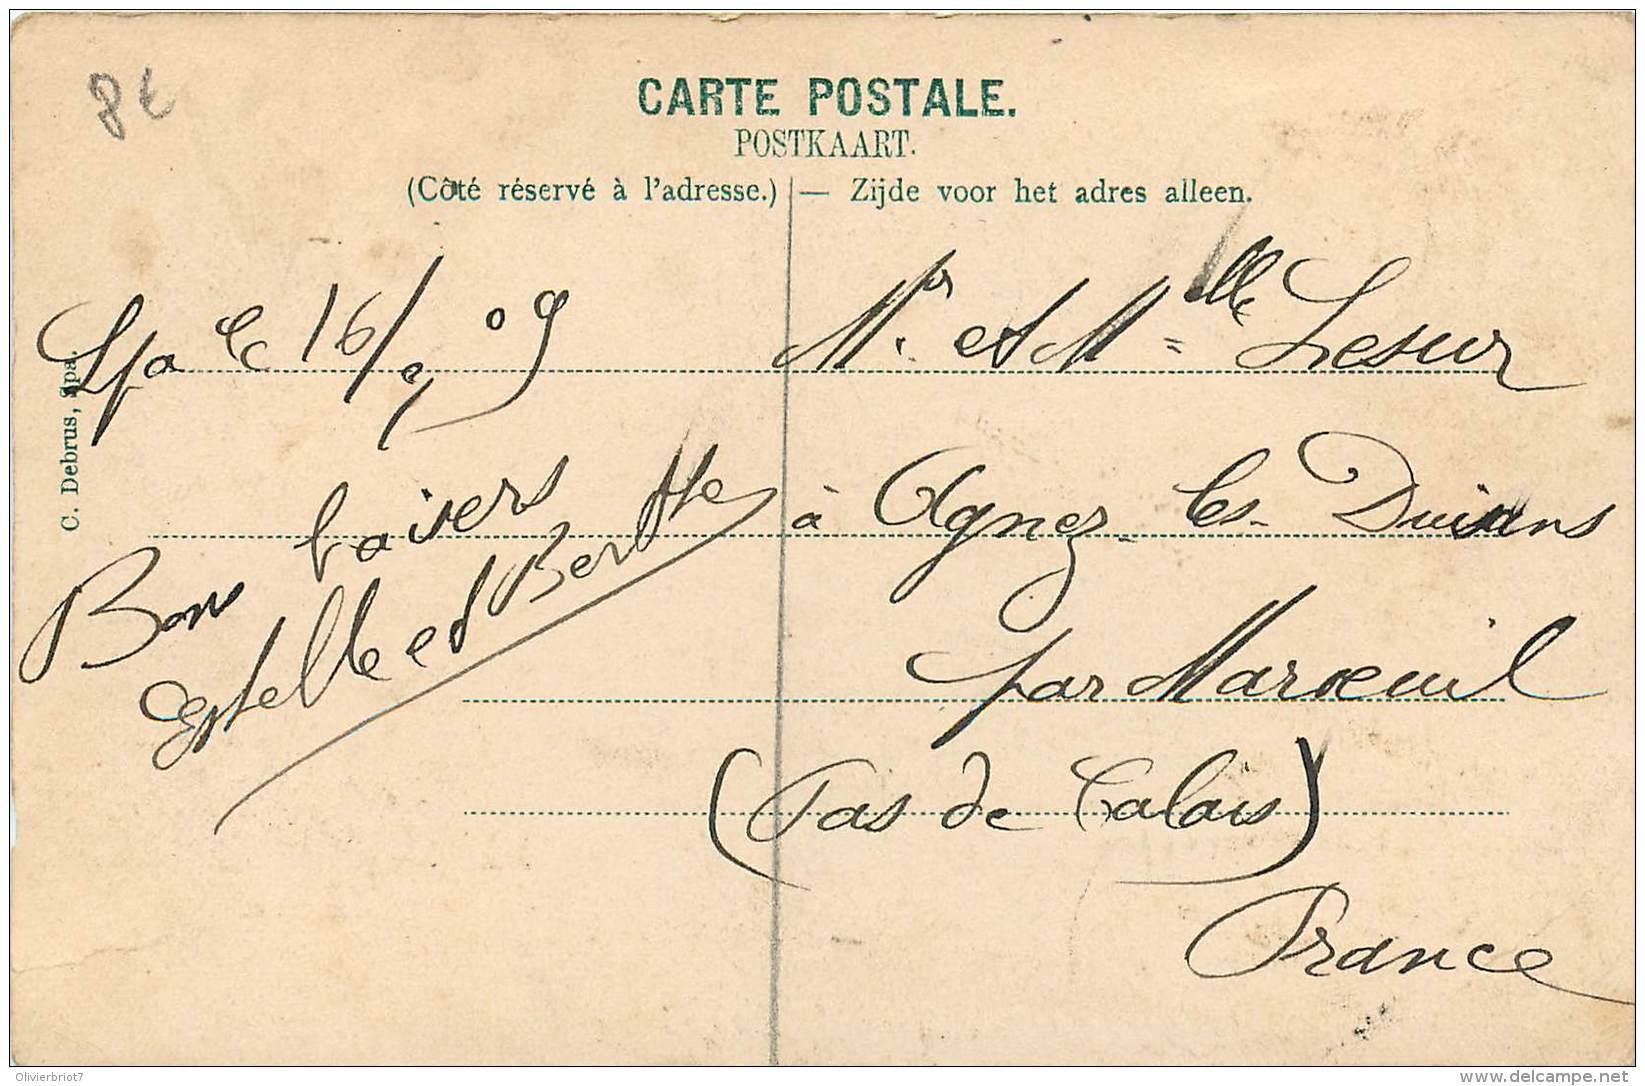 8€
CARTE POSTALE.
POSTKAART.
(Côté réservé à l'adresse.) — Zijde voor het adres alleen.
Spa le 16/ 09
Bons baisers
Estelle et Berthe
C. Debrus, Spa.
Mr. et Mlle Lesur
à Agnez-les-Duisans
par Maroeuil
(Pas de Calais)
France
Olivierbriot7
www.delcampe.net